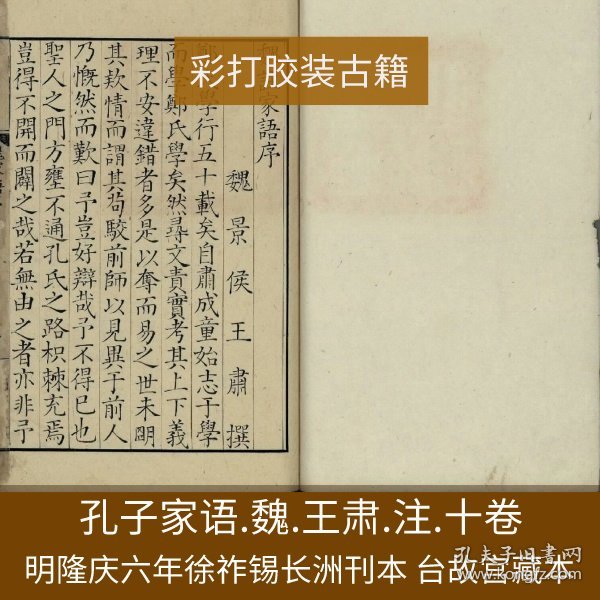 彩打胶装古籍
家語序
魏景侯王肅撰
學行五十載矣自肅成童始志于學
而學鄭氏學矣然尋文責實考其上下義
理不安違錯者多是以奪而易之世未明
其欵情而謂其苟駮前師以見異于前人
乃慨然而歎曰予豈好辯哉予不得已也
聖人之門方壅不通孔氏之路枳棘充焉
豈得不開而闢之哉若無由之者亦非予
孔子家语.魏.王肃.注.十卷
明隆庆六年徐祚锡长洲刊本 台故宫藏本
孔夫子旧书网